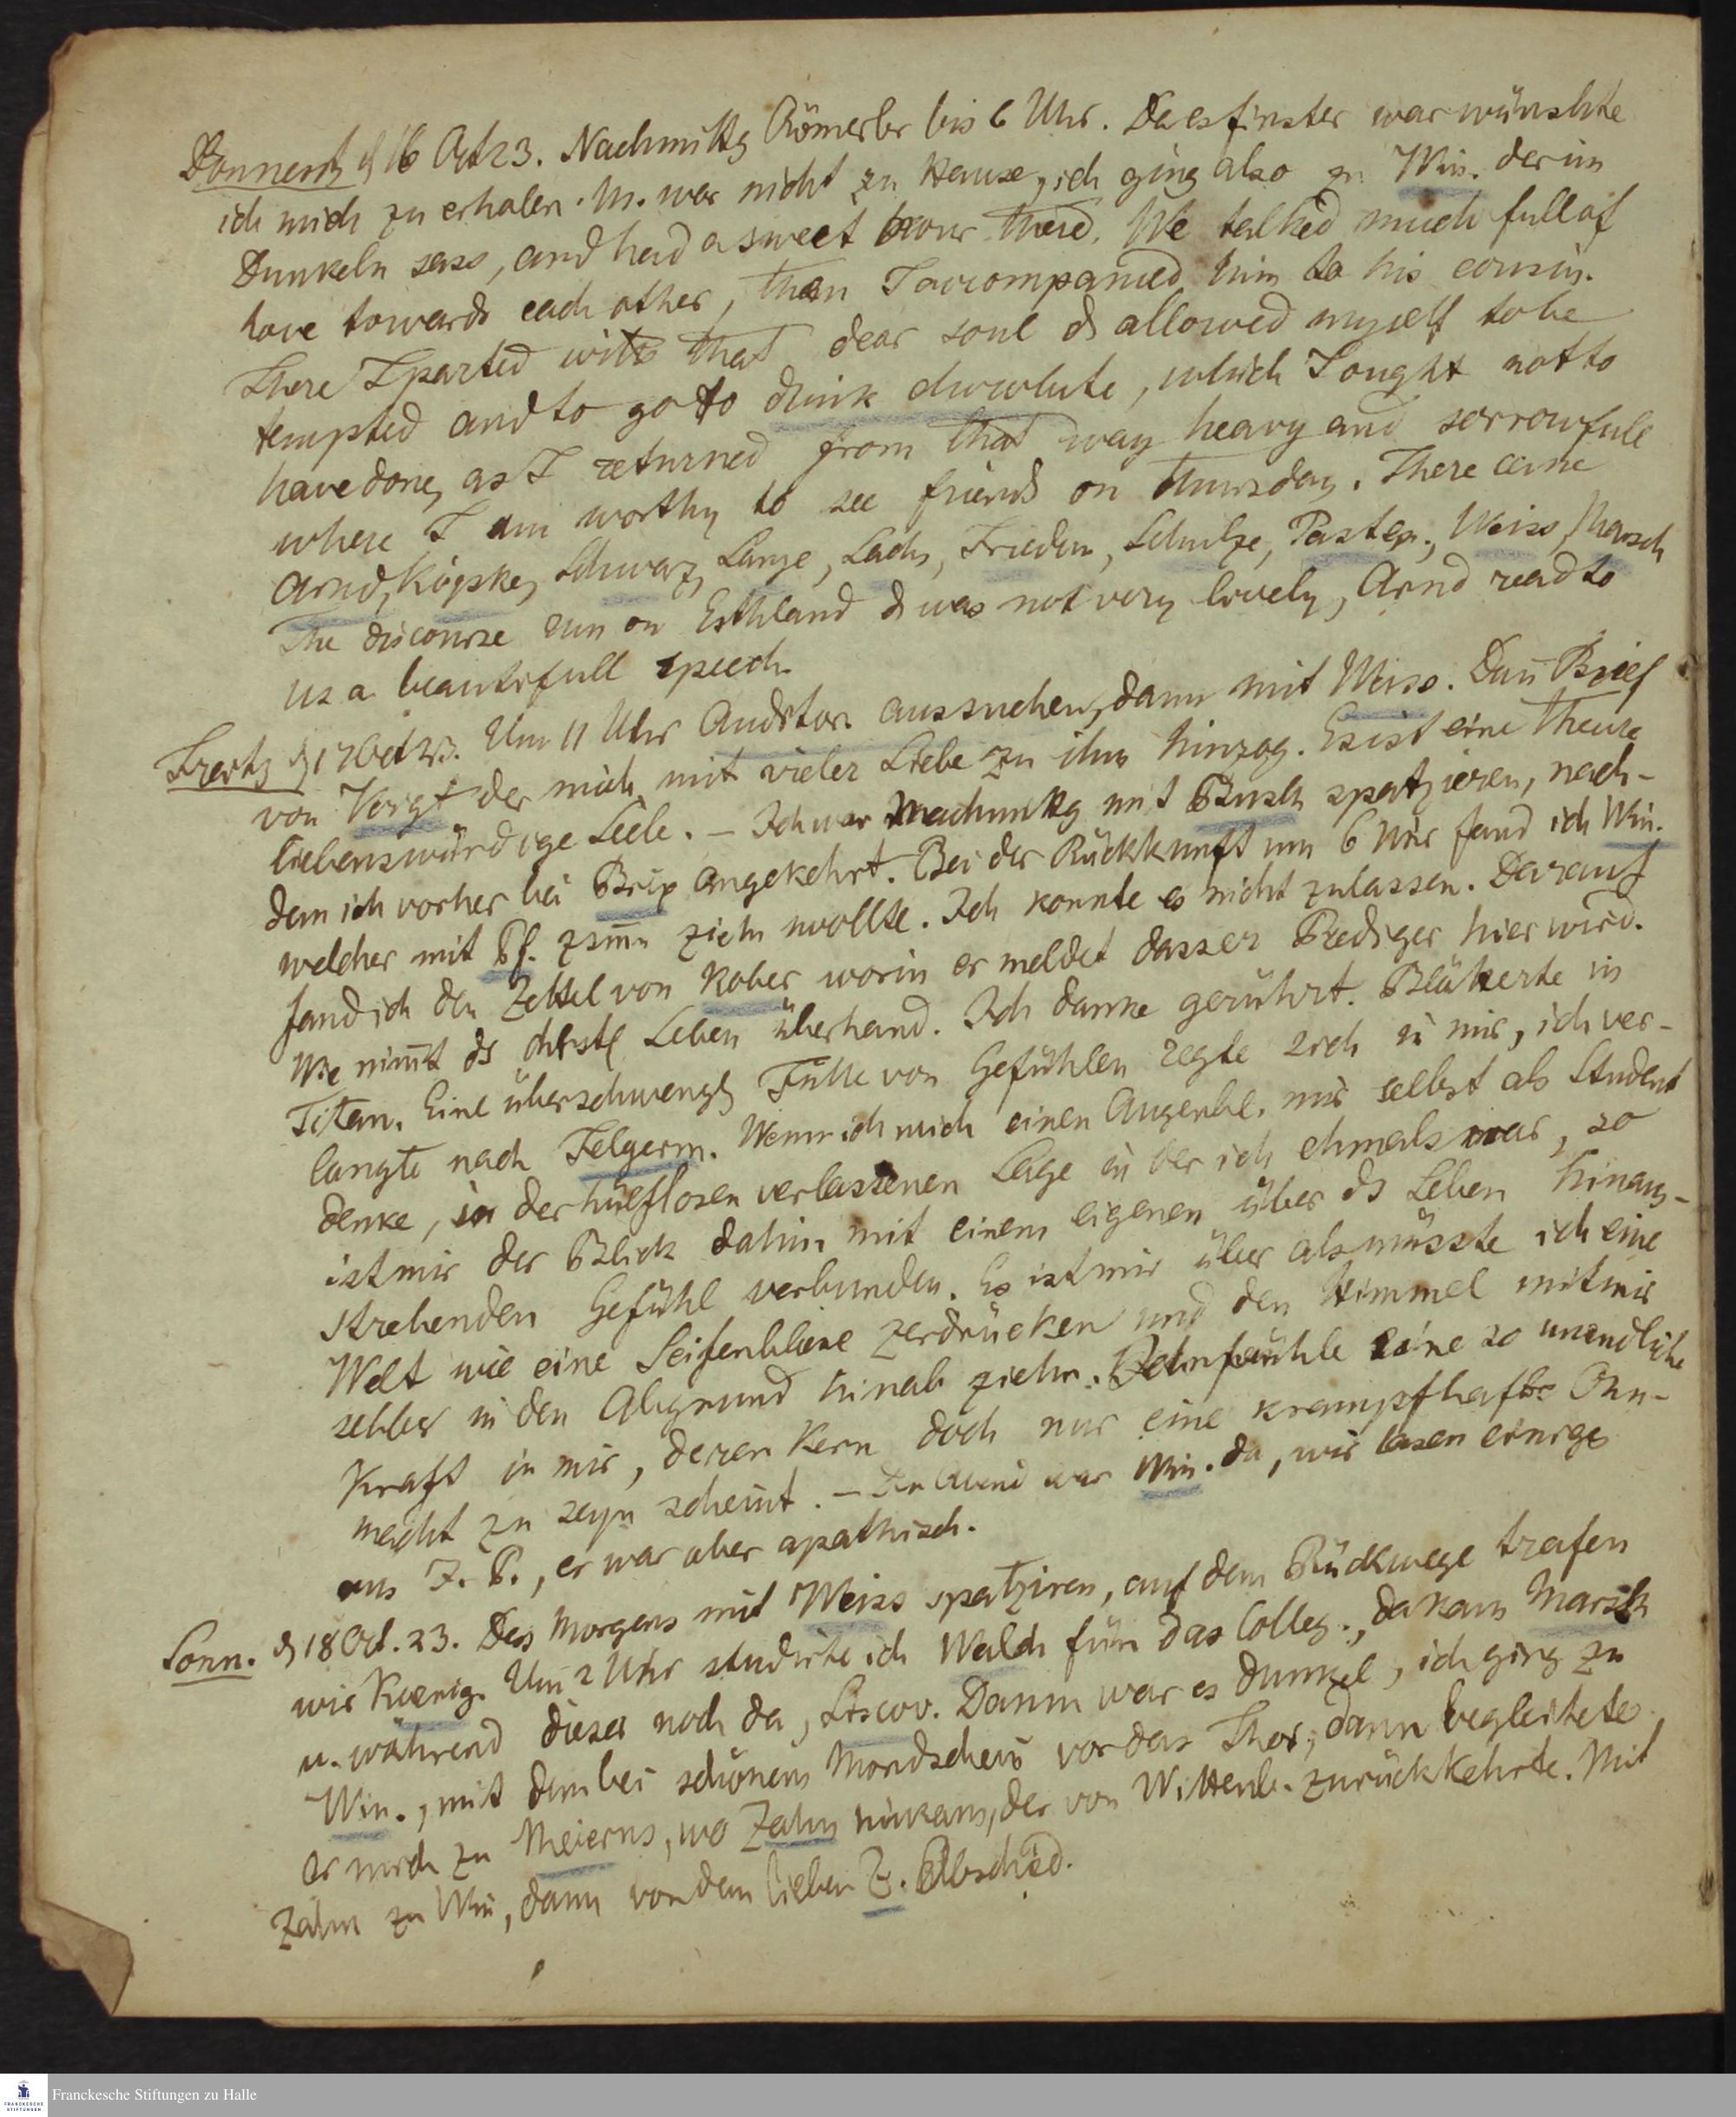 Donnerstg d 16 Oct 23. Nachmittg Römerbr bis 6 Uhr. Da es finster war wünschte
ich mich zu erholen. M. war nicht zu Hause, ich ging also zu Win. der im
Dunkeln sass, and had a sweet hour there. We talked much full of
love towards each other, then I accompanied him to his cousin.
There I parted with that dear soul & allowed myself to be
tempted and to go to drink chocolate, which I ought not to
have done, as I returned from that way heavy and sorrowfull
where I am worthy to see friends on thursday. There came
Arnd, Köpske, Schwarz, Lange, Lachs, Frieden, Schulze, Paster., Weiss, Marsch
The discourse run on Esthland & was not very lively, Arnd read to
us a beautifull speech.
Freitg d 17 Oct 23. Um 11 Uhr Auditor. aussuchen, dann mit Weiss. Dañ Brief
von Voigt der mich mit vieler Liebe zu ihm hinzog. Es ist eine theure
liebenswürdige Seele. – Ich war Nachmittg mit Busch spatzieren, nach-
dem ich vorher bei Brix angekehrt. Bei der Rückkunft um 6 Uhr fand ich Win.
welcher mit Pf. zsm̄n ziehn wollte. Ich konnte es nicht zulassen. Darauf
fand ich den Zettel von Kober worin er meldet dasser Prediger hier wird.
Wie nim̄t ds christl Leben überhand. Ich danke gerührt. Blätterte in
Titan. Eine überschwengl Fülle von Gefühlen regte sich in mir, ich ver-
langte nach Felgerm. Wenn ich mich einen Augenbl. mir selbst als Student
denke, in der hülflosen verlassenen Lage in der ich ehmals war, so
ist mir der Blick dahin mit einem eigenen über ds Leben hinaus-
strebenden Gefühl verbunden. Es ist mir über als müsste ich eine
Welt wie eine Seifenblase zerdrücken und den Himmel mit mir
selber in den Abgrund hinab ziehn. Denn fühle eine so unendliche
Kraft in mir, deren Kern doch nur eine krampfhafte Ohn-
macht zu seyn scheint. – Den Abend war Win. da, wir lasen einige
aus J. P., er war aber apathisch.
Sonn. d 18 Oct. 23. Des Morgens mit Weiss spatziren, auf dem Rückwege trafen
wir Kœnig. Um 2 Uhr studirte ich Walch für das Colleg., da kam Marsch
u. während dieser noch da, Liscov. Dann war es dunkel, ich ging zu
Win., mit dem bei schönem Mondschein vor das Thor, dann begleitete
er mich zu Meierns, wo Zahn hinkam, der von Wittenb. zurückkehrte. Mit
Zahn zu Win, dann von dem lieben Z. Abschied.
Franckesche Stiftungen zu Halle
FRANCKESCHE
STIFTUNGEN